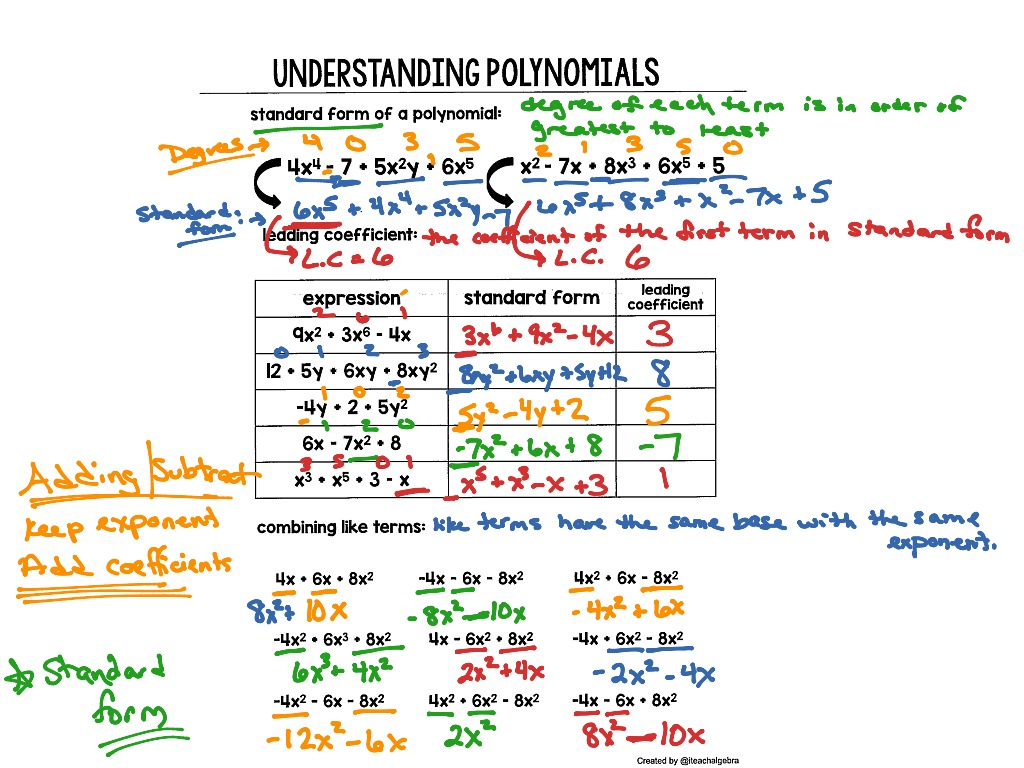 UNDERSTANDING POLYNOMIALS
standard form of a polynomial: degree of each term is in order of
greatest to least
Degrees → 4 0 3 5 2 1 3 5 0
4x⁴ - 7 + 5x²y + 6x⁵ x² - 7x + 8x³ + 6x⁵ + 5
Standard form → 6x⁵ + 4x⁴ + 5x²y - 7 6x⁵ + 8x³ + x² - 7x + 5
leading coefficient: the coefficient of the first term in standard form
L.C = 6 L.C. 6
expression standard form leading coefficient
2 6 1
9x² + 3x⁶ - 4x 3x⁶ + 9x² - 4x 3
0 1 2 3
12 + 5y + 6xy + 8xy² 8xy² + 6xy + 5y + 12 8
1 0 2
-4y + 2 + 5y² 5y² - 4y + 2 5
1 2 0
6x - 7x² + 8 -7x² + 6x + 8 -7
3 5 0 1
x³ + x⁵ + 3 - x x⁵ + x³ - x + 3 1
Adding/Subtract
Keep exponent
Add coefficients
combining like terms: like terms have the same base with the same
exponent.
4x + 6x + 8x² -4x - 6x - 8x² 4x² + 6x - 8x²
8x² + 10x -8x² - 10x -4x² + 6x
-4x² + 6x³ + 8x² 4x - 6x² + 8x² -4x + 6x² - 8x²
6x³ + 4x² 2x² + 4x -2x² - 4x
Standard
form
-4x² - 6x - 8x² 4x² + 6x² - 8x² -4x - 6x + 8x²
-12x² - 6x 2x² 8x² - 10x
Created by @iteachalgebra